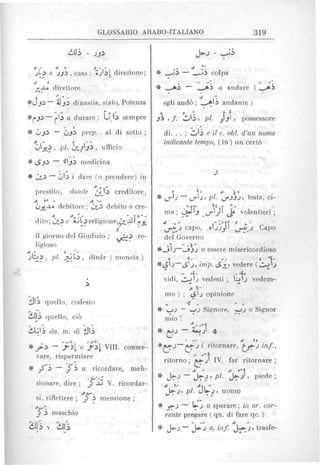 GLOSSARIO ARABO-ITALIANO 319
ذلك - دور
دار e دور, casa : إدارة direzione;
مدير direttore
* دول — دولة dinastia, stato, Potenza
* دوم — دام a durare ; دائما sempre
* دون — دون prep. al di sotto ;
ديوان, pl. دواوين, ufficio
* دوى — دواء medicina
* دين — دان i dare (o prendere) in
prestito, donde دائن creditore,
مديون debitore ; دين debito o cre-
dito ; دين religione,
il giorno del Giudizio ; re-
ligioso
دينار, pl. دنانير, dinâr ( moneta )
ذ
ذلك quello, codesto
ذلك quello, ciò
ذانك du. m. di ذلك
VIII. conser-
vare, risparmiare
* ذكر — ذكر a ricordare, meh-
zionare, dire ; تذكر V. ricordar-
si, riflettere ; ذكر menzione ;
ذكر maschio
ذلك v. ذلك
رجل - ذنب
* ذنب — ذنب colpa
* ذهب — ذهب a andare (
egli andò ; ذاهب andante )
ذو, f. ذات, pl. possessore
di. . . ; ذات e il c. obl. d'un nome
indicante tempo, ( in ) un certo
ر
* رأس — رأس, pl. رؤوس, testa, ci-
ma ; volentieri ;
رئيس capo, Capo
del Governo
* رأف — رأف a essere misericordioso
* رأى — رأى, imp. vedere (
vidi, vedesti ; vedem-
mo ) ; رأي opinione
* رب — رب Signore, o Signor
mio !
* ربع — أربعة 4
* رجع — رجع i ritornare, inf.,
ritorno ; IV. far ritornare ;
* رجل — رجل, pl. أرجل, piede ;
رجل, pl. رجال, uomo
* رجو — رجا u sperare ; in ar. cor-
rente pregare ( qn. di fare qc. )
* رحل — رحل a, inf. رحيل, trasfe-